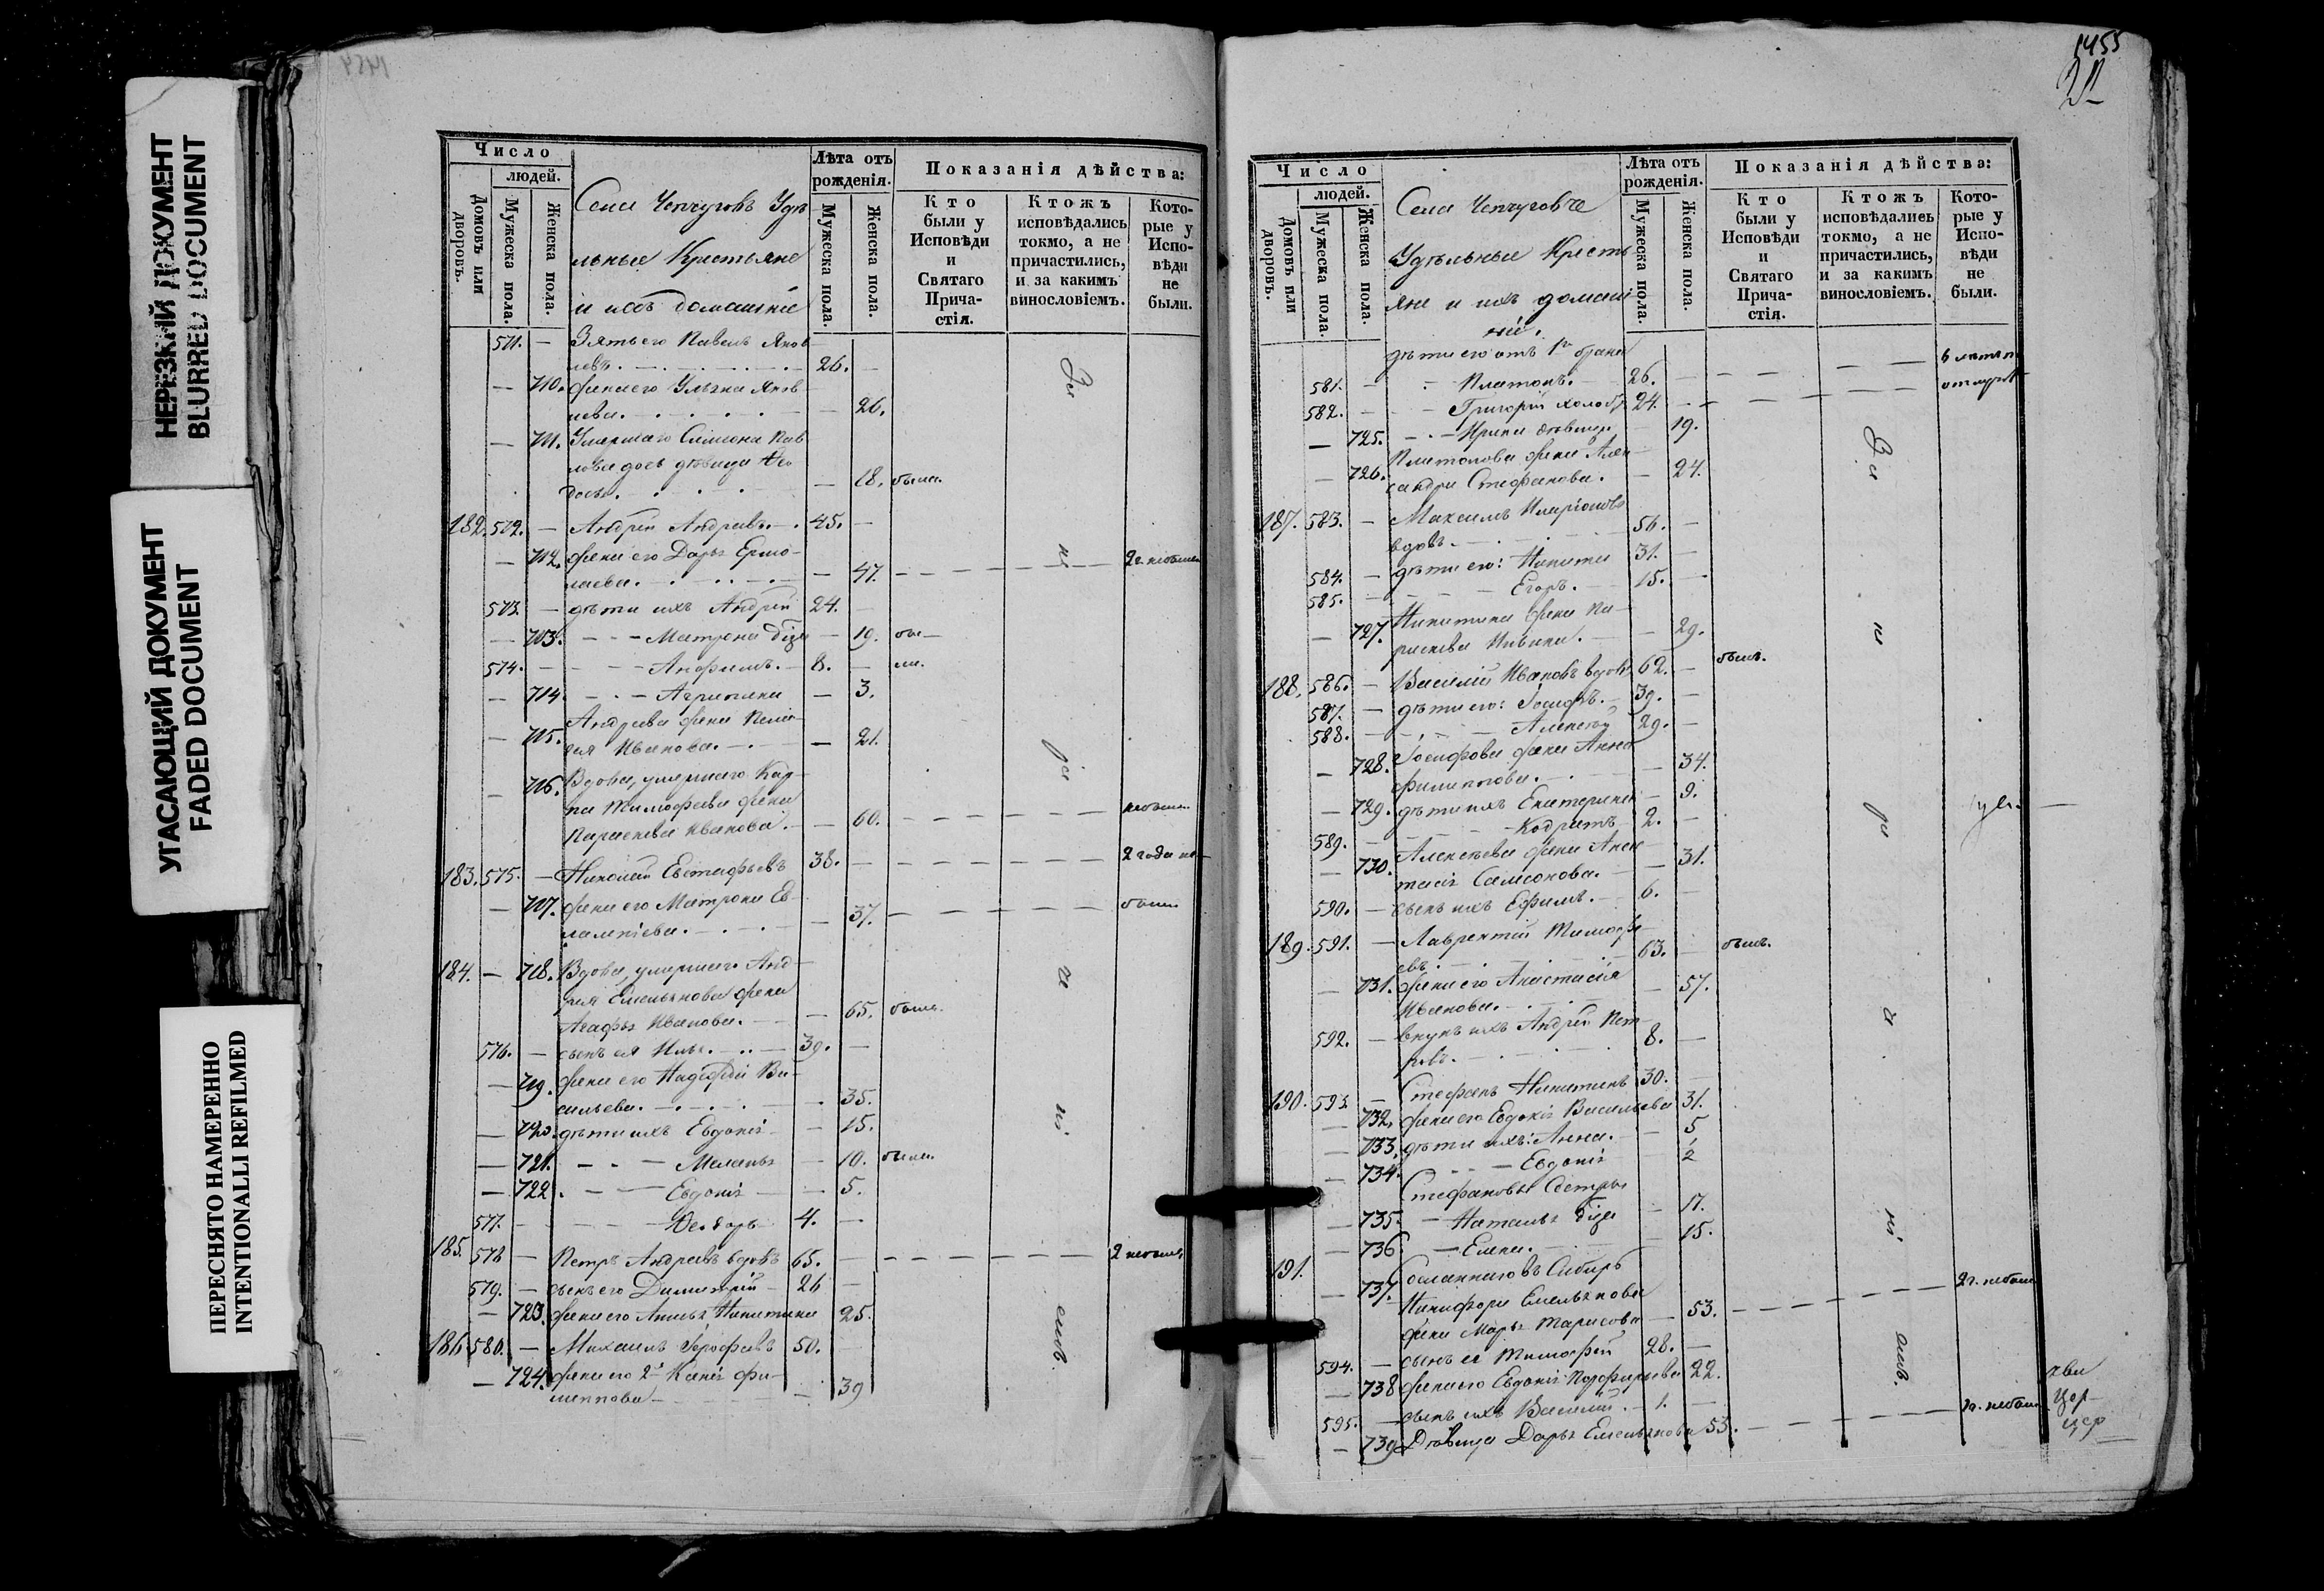 НЕРЕЗКИЙ ДОКУМЕНТ
BLURRED DOCUMENT
УГАСАЮЩИЙ ДОКУМЕНТ
FADED DOCUMENT
ПЕРЕСНЯТО НАМЕРЕННО
INTENTIONALLI REFILMED
Число
людей.
Домовъ или дворовъ.
Мужеска пола.
Женска пола.
Села Чепчуговъ Удѣ
льные Крестьяне
и ихъ домашніе
Лѣта отъ
рожденія.
Мужеска пола.
Женска пола.
Показанія дѣйства:
Кто
были у
Исповѣди
и
Святаго
Прича-
стія.
Ктожъ
исповѣдались
токмо, а не
причастились,
и за какимъ
винословіемъ.
Кото-
рые у
Испо-
вѣди
не
были.
511. — Зять его Павелъ Яков
левъ. 26. —
— 710. жена его Ульяна Яков
лева. — 26.
— 711. Умершаго Симеона Пав
лова дочь дѣвица Ѳео
досья. — 18. были.
182. 512. — Андрей Андреевъ. 45. —
— 712. жена его Дарья Ермо-
лаева. — 47. 2 г. небыла
513. — дѣти ихъ Андрей 24. —
— 713. Матрена — 19. бы—
514. — Анфимъ. 8. — ли.
— 714. Агрипина — 3.
— 715. Андреева жена Пела-
гея Иванова. — 21.
— 716. Вдова, умершаго Кар-
па Тимофеева жена
Параскева Иванова. — 60. небыла
183. 575. — Николай Евстафьевъ 38. — 2 года не
— 717. жена его Матрона Ев-
лампіева. — 37. были
184. — 718. Вдова, умершаго Анд-
рея Емельянова жена
Агафья Иванова. — 65. были
576. — сынъ ея Илья. 39. —
— 719. жена его Надежда Ва-
сильева. 35.
— 720. дѣти ихъ Евдокія — 15.
— 721. Меланья — 10. были.
— 722. Евдокія — 5.
577. — Ѳеодоръ 4. —
185. 578 — Петръ Андреевъ вдовъ 65. — 2 небылъ
579. — сынъ его Димитрій 26 —
— 723. жена его Анисья Никитина 25.
186 580. — Михаилъ Ерофеевъ 50. —
— 724. жена его 2я Ксенія Фи-
липпова — 39
За
не
рa
че
ні
емъ.
1455
Число
людей.
Домовъ или дворовъ.
Мужеска пола.
Женска пола.
Села Чепчуговъ
Удѣльные Кресть
яне и ихъ домаш
ніе.
Лѣта отъ
рожденія.
Мужеска пола.
Женска пола.
Показанія дѣйства:
Кто
были у
Исповѣди
и
Святаго
Прича-
стія.
Ктожъ
исповѣдались
токмо, а не
причастились,
и за какимъ
винословіемъ.
Кото-
рые у
Испо-
вѣди
не
были.
дѣти его отъ 1го брака
581. — Платонъ. 26. —
582. — Григорій 24. —
— 725. Ирина дѣвица 19.
— 726. Платонова жена Алек
сандра Стефанова. — 24.
187. 583. — Максимъ Иларіоновъ
вдовъ. 56. —
584. — дѣти его: Никита 31. —
585. — Егоръ. 15. —
— 727. Никитина жена Па-
раскева Ильина. — 29.
188. 586. — Василій Ивановъ вдовъ 62. — былъ.
587. — дѣти его: Іосифъ. 39. —
588. — Алексѣй 29. —
— 728. Іосифова жена Анна
Филиппова. — 34.
— 729. дѣти ихъ Екатерина — 9.
589. — Кодратъ 2. —
— 730. Алексѣева жена Анас
тасія Самсонова. — 31.
590. — сынъ ихъ Ефимъ. 6. —
189. 591. — Лаврентій Тимофе
евъ. 63. — былъ.
— 731. жена его Анастасія
Иванова. — 57.
592. — внукъ ихъ Андрей Пет-
ровъ. 8. —
190. 593. — Стефанъ Никитинъ 30. —
— 732. жена его Евдокія Васильева 31.
— 733. дѣти ихъ: Анна. — 5
— 734. Евдокія 2
Стефановы Сестры
— 735. Наталья — 17.
— 736. Елена. — 15.
191. — 737. Сосланнаго въ Сибирь
Никифора Емельянова
жена Марья Тарасова — 53. 2 г. небыла
594. — сынъ ея Тимофей 28. —
— 738 жена его Евдокія Порфирьева 22.
595. — сынъ ихъ Василій. 1. —
— 739 Дѣвица Дарья Емельянова 53. 2 г. небыла
За
не
рa
че
ні
емъ.